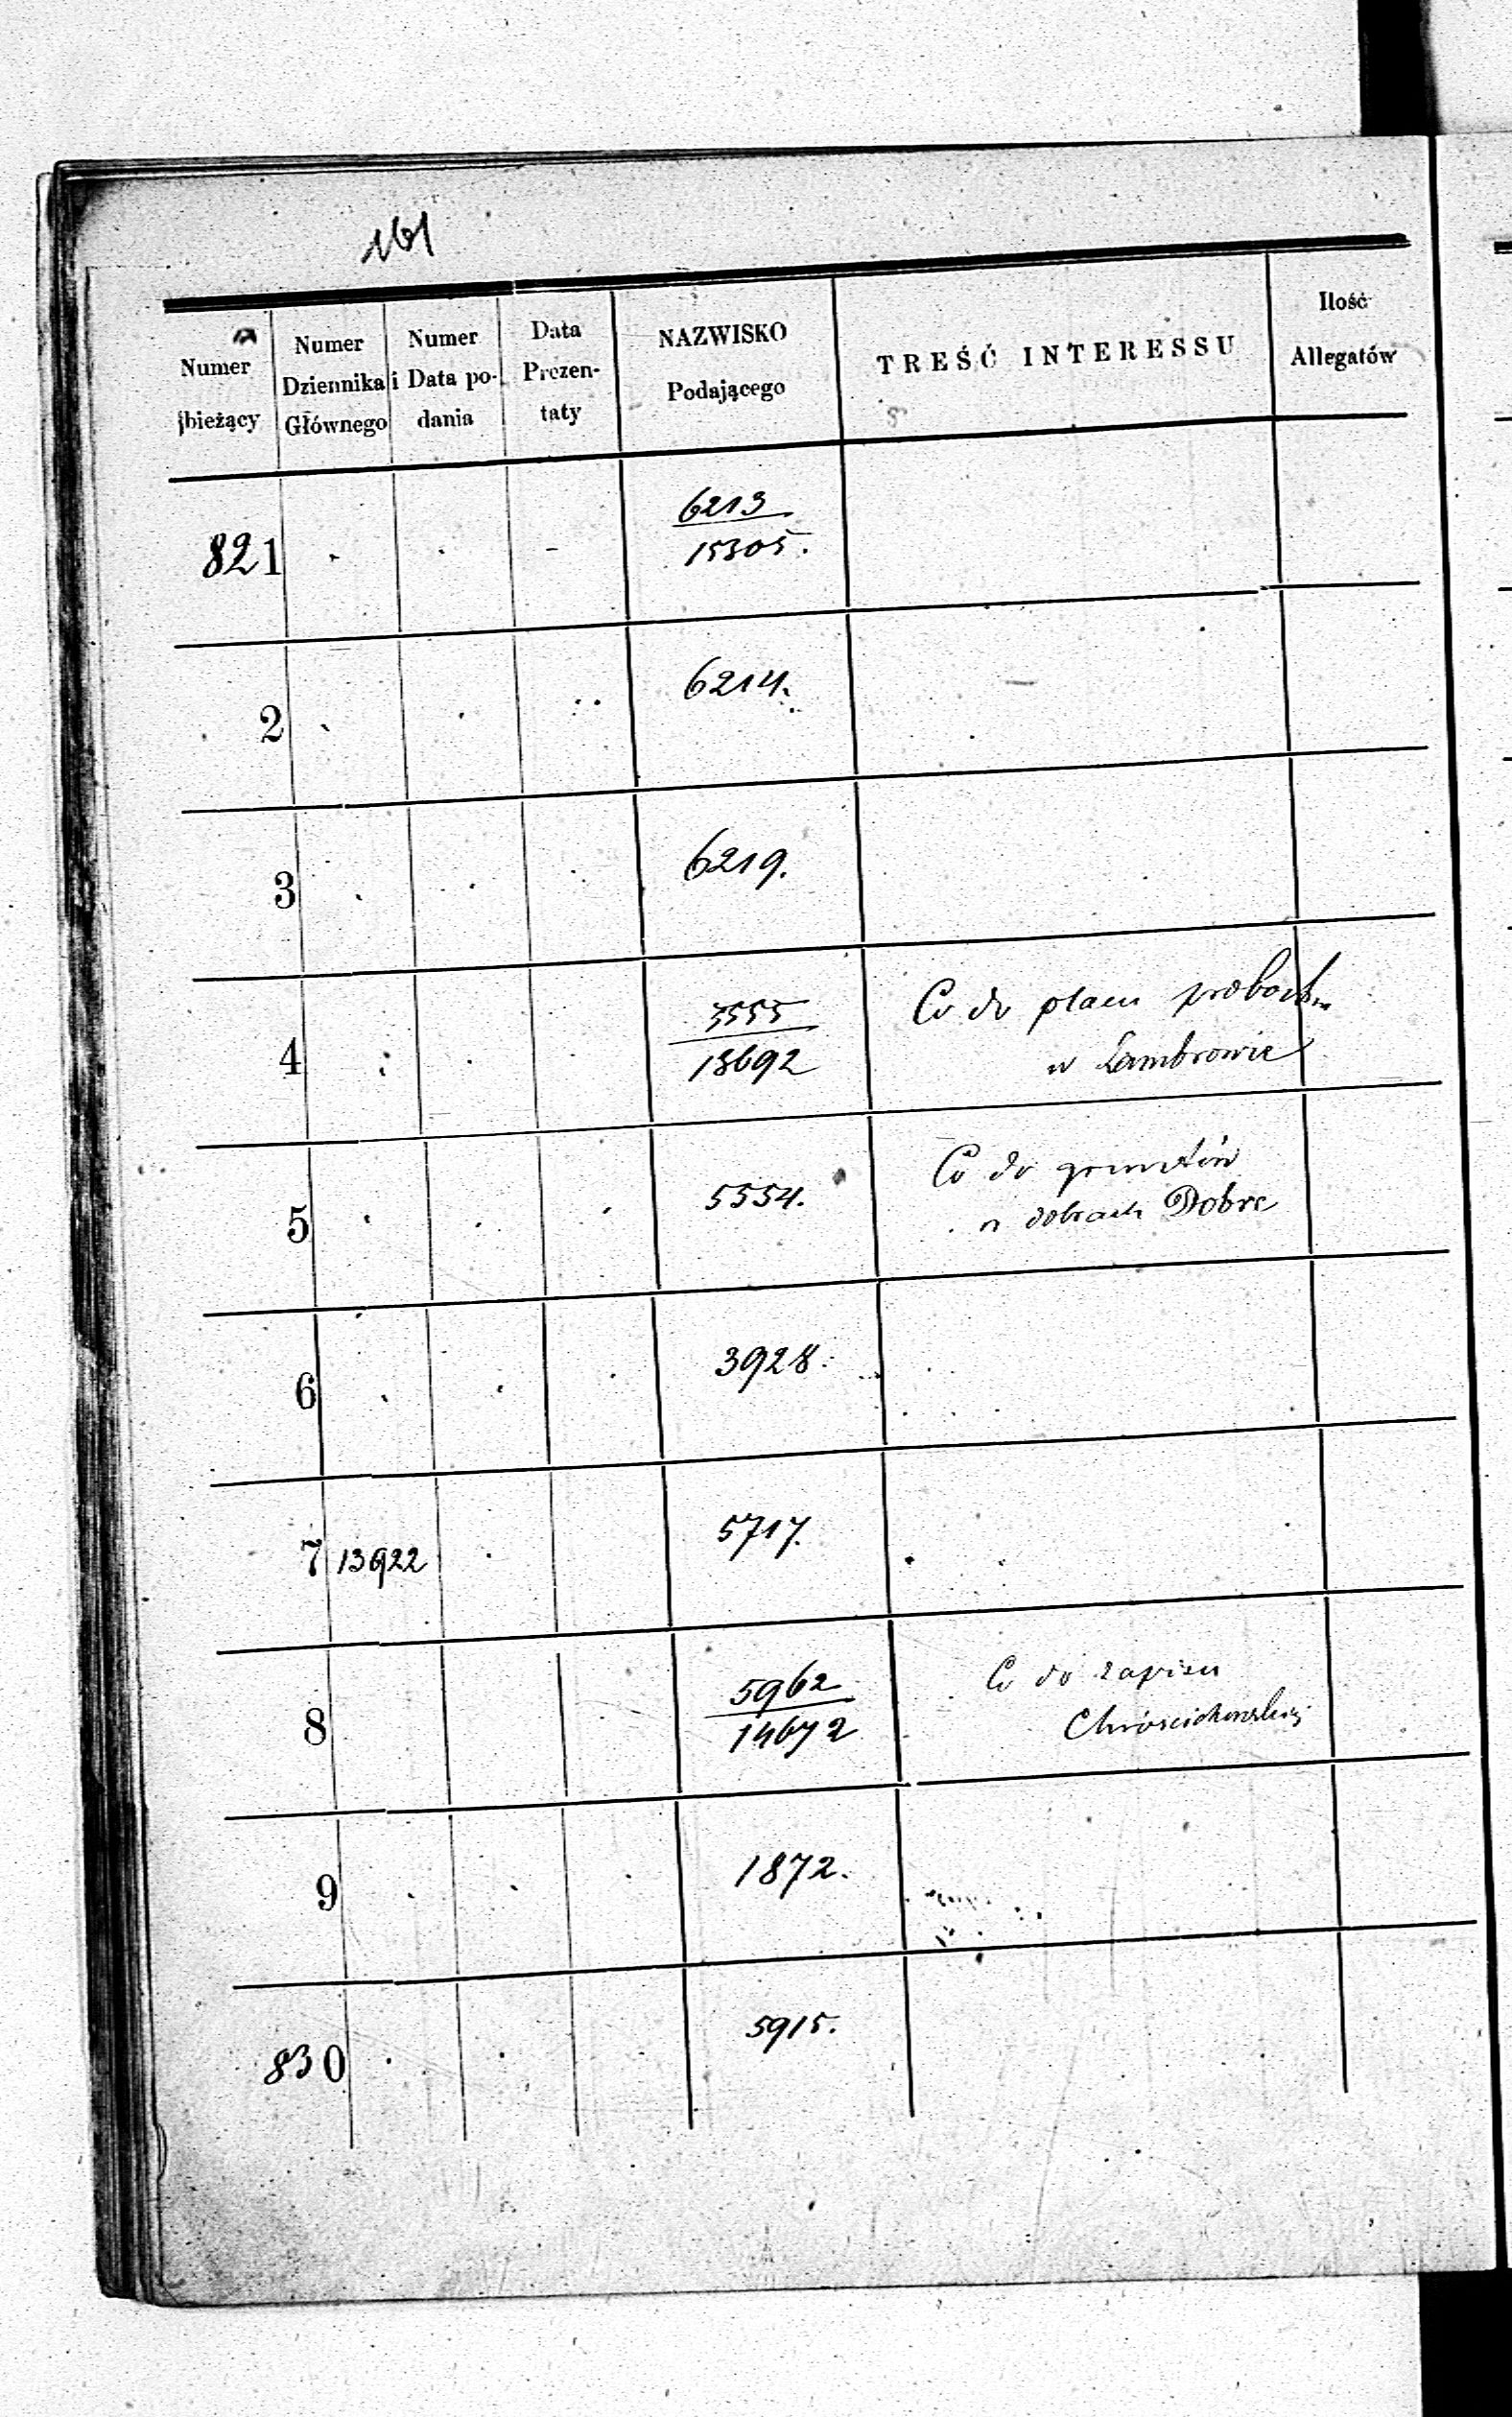 161
Numer bieżący
Numer Dziennika Głównego
Numer i Data podania
Data Prezentaty
NAZWISKO Podającego
TREŚĆ INTERESSU
Ilość Allegatów
821
6213
15305.
2
6214.
3
6219.
4
3555
13692
Co do placu
w Lambrowie
5
5554.
Co do gruntów
w dobrach Dobre
6
3928.
7 13922
5717.
8
5962
14672
Co do zapisu
9
1872.
830
5915.